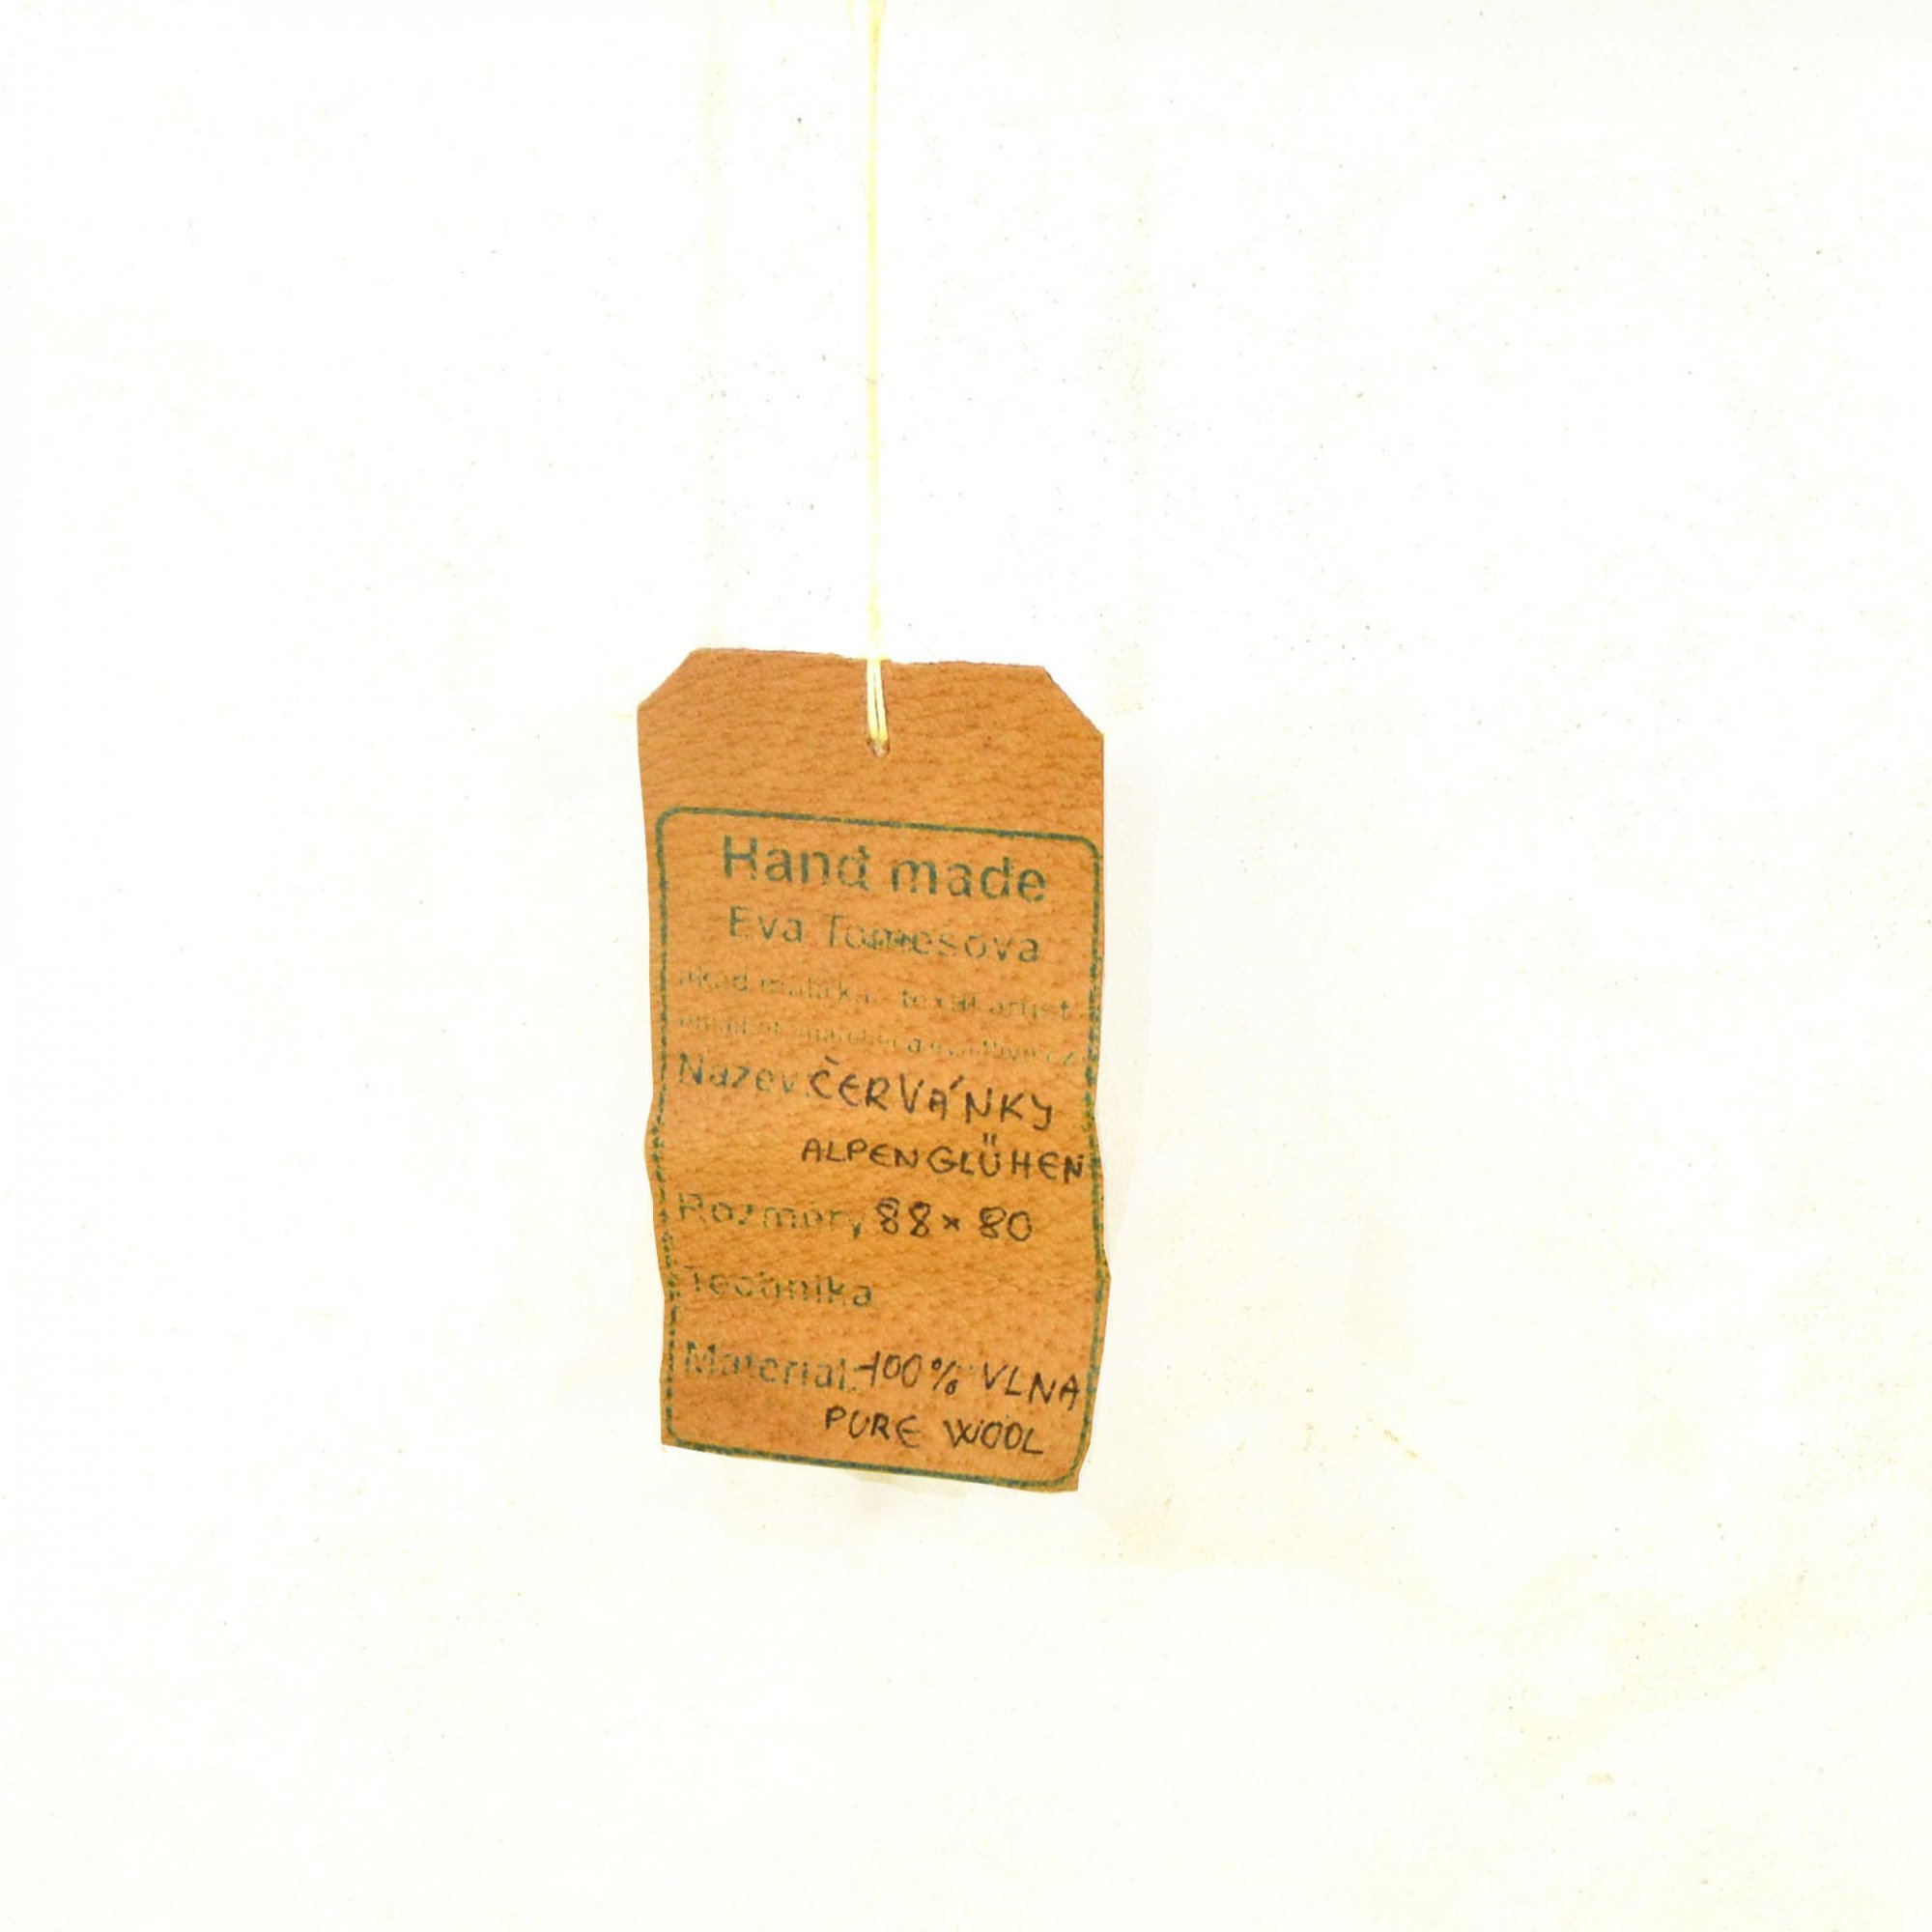 Hand made
Eva Tomesova
akad. malířka textil artist
Nazev: ČERVÁNKY
ALPENGLÜHEN
Rozmery 88 x 80
Technika
Material: 100% VLNA
PURE WOOL